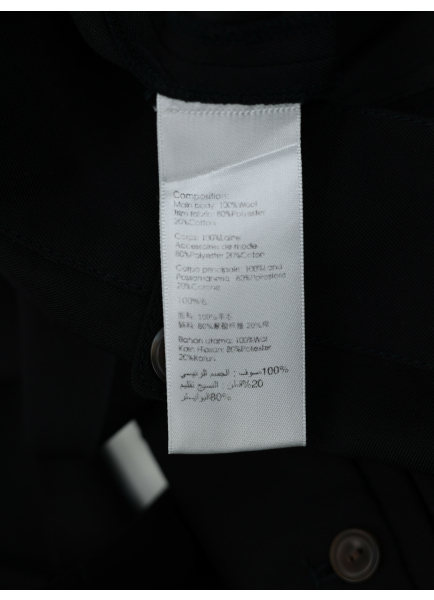 Composition:
Main body: 100%Wool
trim fabric: 80%Polyester
20%Cotton
Corps: 100%Laine
Accessoires de mode:
80%Polyester 20%Coton
Corpo principale: 100%Lana
80%
20%Cotone
100%毛
100%羊毛
80% 20%棉
Bahan utama: 100%Wol
Kain Hiasan: 80%Poliester
20%Katun
100%صوف : الجسم الرئيسي
20%قطن :
80%البوليستر